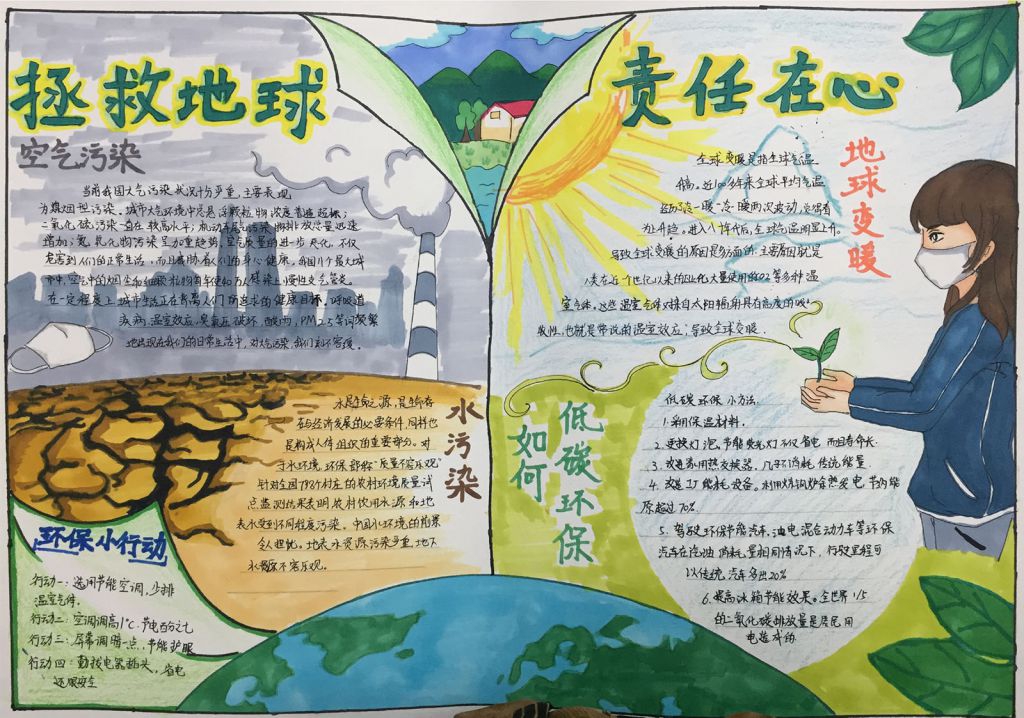 拯救地球
空气污染
当前我国大气污染状况十分严重,主要表现
为煤烟型污染。城市大气环境中总悬浮颗粒物浓度普遍超标;
二氧化硫污染一直在较高水平;机动车尾气污染物排放总量迅速
增加;氮氧化物污染呈加重趋势。空气质量的进一步恶化,不仅
危害到人们的正常生活,而且威胁着人们的身心健康。我国11个最大城
市中,空气中的烟尘和细颗粒物每年使40万人感染上慢性支气管炎
在一定程度上城市生活正在背离人们所追求的健康目标,呼吸道
疾病,温室效应,臭氧层破坏,酸雨,PM2.5等词频繁
地出现在我们的日常生活中,对大气污染,我们刻不容缓。
水污染
水是生命之源,是生命存
在与经济发展的必要条件,同样也
是构成人体组织的重要部分。对
于水环境,环保部称"质量不容乐观"
针对全国798个村庄的农村环境质量试
点监测结果表明,农村饮用水源和地
表水受到不同程度污染。中国水环境的前景
令人担忧。地表水资源污染严重,地下
水
不容乐观。
环保小行动
行动一:选用节能空调,少排
温室气体。
行动二:空调调高1℃,节电百分之七
行动三:屏幕调暗一点,节能护眼
行动四:勤拔电器插头,省电
还很安全
责任在心
地球变暖
全球变暖是指全球气温
升高。近100多年来全球平均气温
经历了冷-暖-冷-暖两次波动,总的看
为上升趋,进入八十年代后,全球气温明显上升。
导致全球变暖的原因是多方面的,主要原因就是
人类在近一个世纪以来的工业化大量使用的CO2等多种温
室气体。这些温室气体对来自太阳辐射具有高度的吸
收性,也就是常说的温室效应,导致全球变暖.
如何
低碳环保
低碳环保小方法.
1.采用保温材料.
2.更换灯泡,节能荧光灯不仅省电而且寿命长.
3.改造家用热交换器,几乎不消耗传统能量.
4.改造工厂能耗设备。利用燃锅炉余热发电,节约能
源超过70%.
5.驾驶环保节能汽车,油电混合动力车等环保
汽车在汽油消耗量相同情况下,行驶里程可
以传统汽车多出20%
6.提高冰箱节能效果。全世界1/5
的二氧化碳排放量是居民用
电造成的